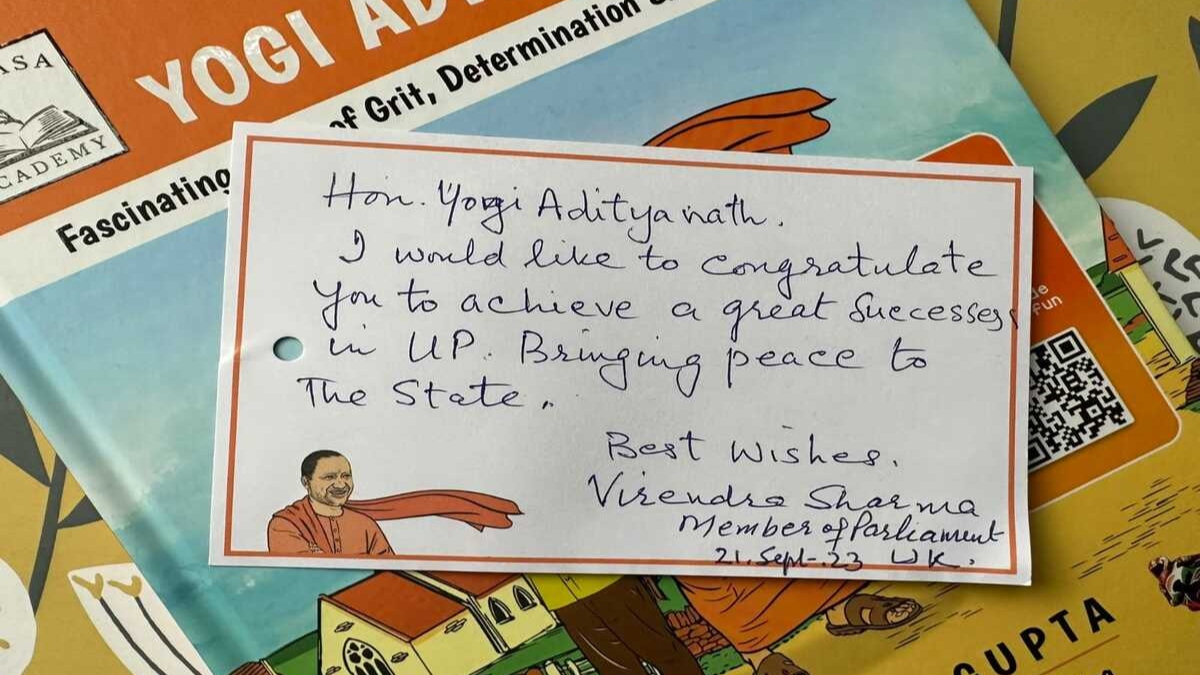 ASA
CADEMY
YOGI AD
Fascinating
of Grit, Determination
Hon. Yogi Adityanath.
I would like to congratulate
you to achieve a great Successes
in UP. Bringing peace to
The State.
Best Wishes.
Virendra Sharma
Member of Parliament
21. Sept. 23 UK.
Fun
GUPTA